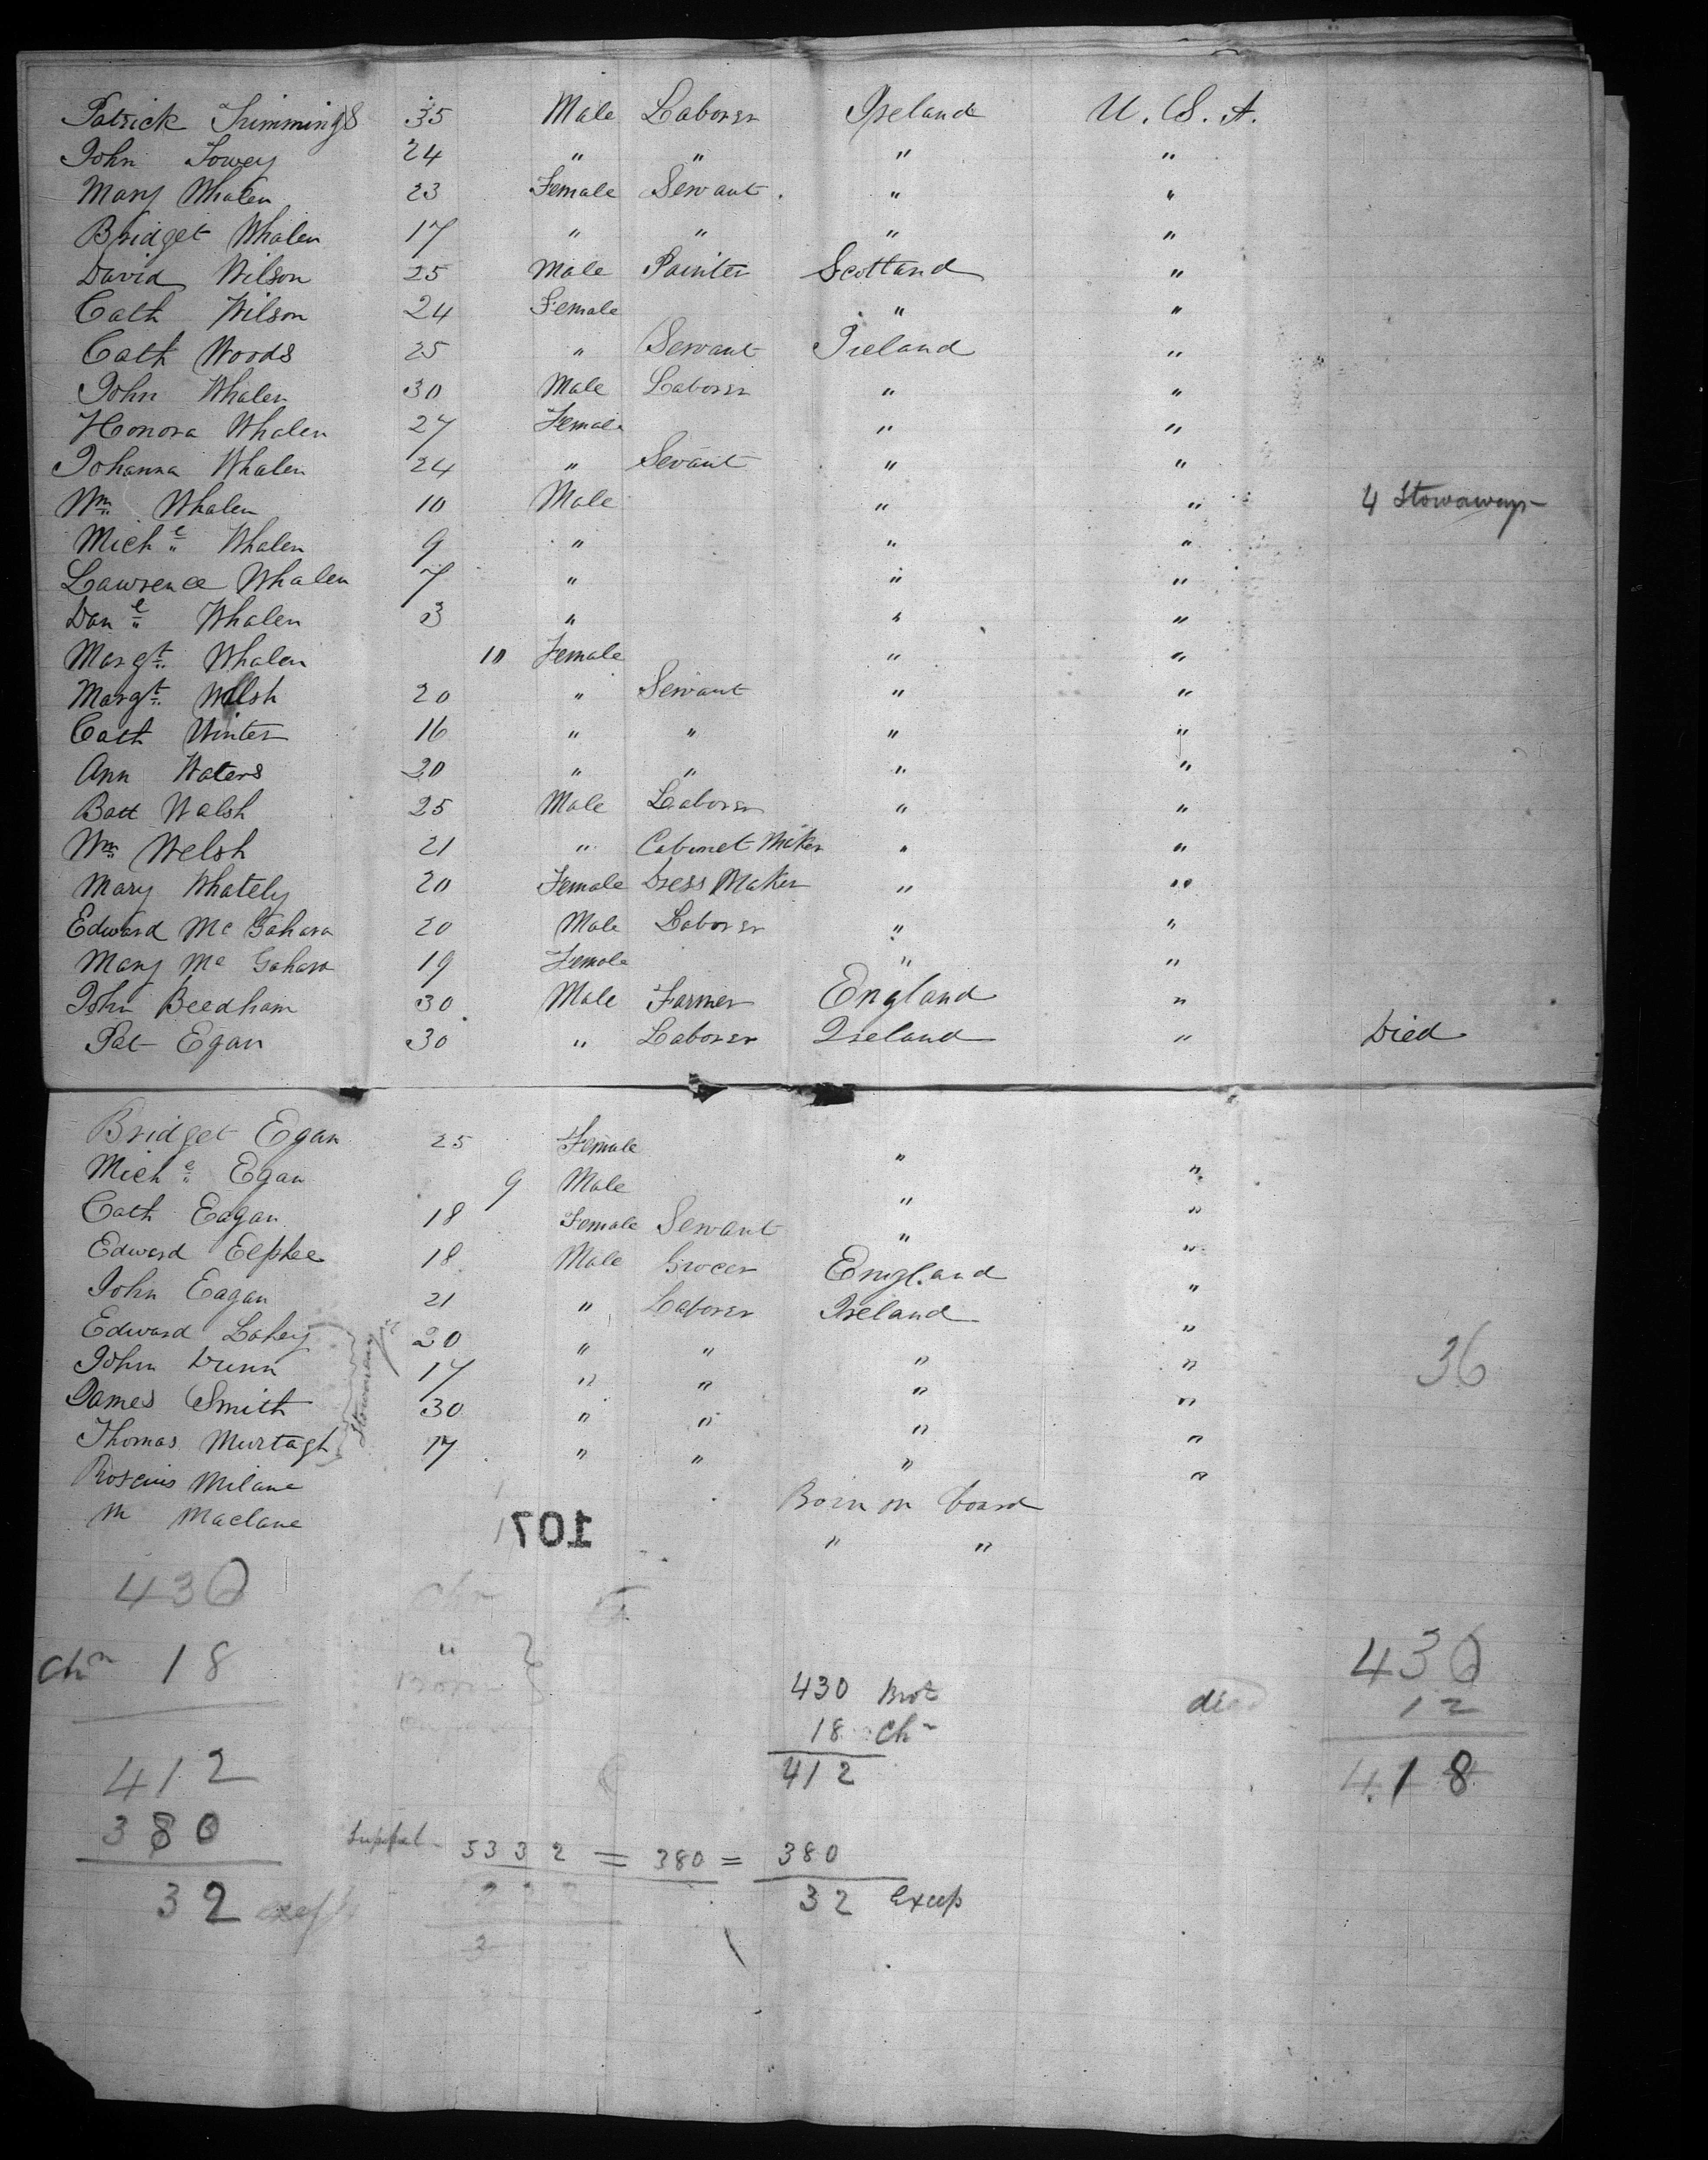 Patrick Trimmings 35 Male Laborer Ireland U.S.A.
John Towey 24 " " " "
Mary Whalen 23 Female Servant " "
Bridget Whalen 17 " " " "
David Wilson 25 Male Painter Scotland "
Cath Wilson 24 Female " "
Cath Woods 25 " Servant Ireland "
John Whalen 30 Male Laborer " "
Honora Whalen 27 Female " "
Johanna Whalen 24 " Sevant " "
Wm Whalen 10 Male " " 4 Stowaways
Mich l Whalen 9 " " "
Lawrence Whalen 7 " " "
Dan l Whalen 3 " " "
Margt Whalen 10 Female " "
Margt Welsh 20 " Servant " "
Cath Winter 16 " " " "
Ann Waters 20 " " " "
Batt Walsh 25 Male Laborer " "
Wm Welsh 21 " Cabinet Maker " "
Mary Whately 20 Female Dress Maker " "
Edward Mc Gahara 20 Male Laborer " "
Mary Mc Gahara 19 Female " "
John Beedham 30 Male Farmer England "
Pat Egan 30 " Laborer Ireland " Died
Bridget Egan 25 Female " "
Mich l Egan 9 Male " "
Cath Eagan 18 Female Servant " "
Edward Elphee 18 Male Grocer England "
John Eagan 21 " Laborer Ireland "
Edward Lahey 20 " " " "
John Dunn 17 " " " "
James Smith 30 " " " "
Thomas Murtagh 17 " " " "
Stowaways
36
Milane Born on board
M Maclane " "
107
430
Chn 18
412
380
32
430 Brot
18 Ch
412
5332 = 380 = 380
32 Excep
430
died 12
418